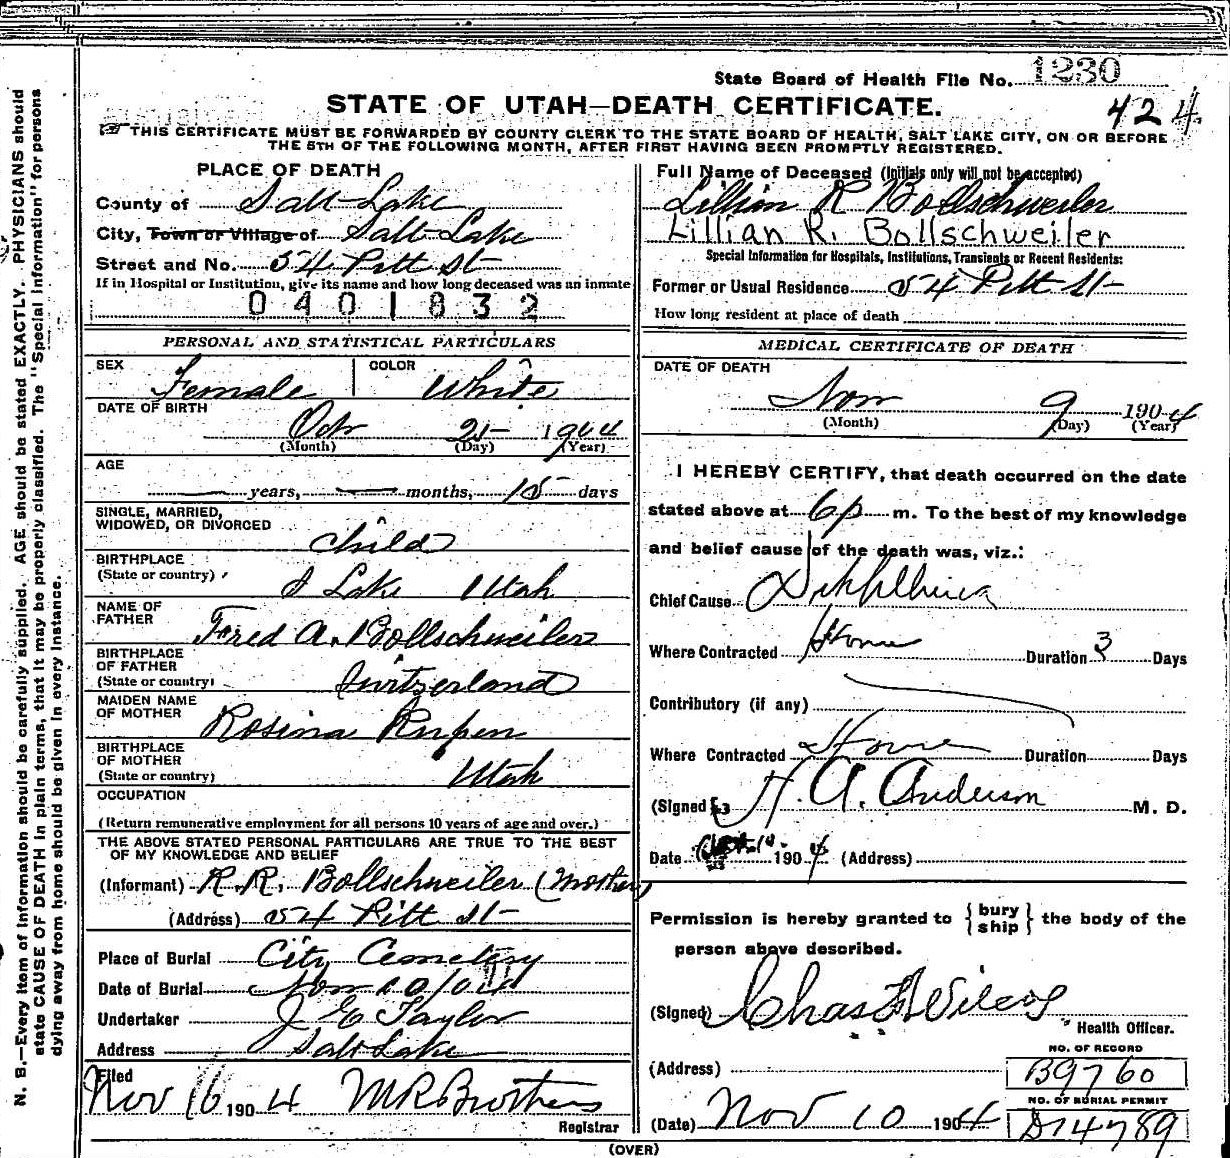 State Board of Health File No. 1230
STATE OF UTAH—DEATH CERTIFICATE.
424
THIS CERTIFICATE MUST BE FORWARDED BY COUNTY CLERK TO THE STATE BOARD OF HEALTH, SALT LAKE CITY, ON OR BEFORE
THE 5TH OF THE FOLLOWING MONTH, AFTER FIRST HAVING BEEN PROMPTLY REGISTERED.
PLACE OF DEATH
County of Salt Lake
City, Town or Village of Salt Lake
Street and No. 54 Pitt St
If in Hospital or Institution, give its name and how long deceased was an inmate
0401832
PERSONAL AND STATISTICAL PARTICULARS
SEX Female COLOR White
DATE OF BIRTH
Oct 25 1904
(Month) (Day) (Year)
AGE
years, months, 15 days
SINGLE, MARRIED,
WIDOWED, OR DIVORCED
Child
BIRTHPLACE
(State or country) S Lake Utah
NAME OF
FATHER Fred A. Bollschweiler
BIRTHPLACE
OF FATHER
(State or country) Switzerland
MAIDEN NAME
OF MOTHER Rosina
BIRTHPLACE
OF MOTHER
(State or country) Utah
OCCUPATION
(Return remunerative employment for all persons 10 years of age and over.)
THE ABOVE STATED PERSONAL PARTICULARS ARE TRUE TO THE BEST
OF MY KNOWLEDGE AND BELIEF
(Informant) R.R. Bollschweiler (Mother)
(Address) 54 Pitt St
Place of Burial City Cemetery
Date of Burial Nov 10/04
Undertaker J E Taylor
Address Salt Lake
Filed
Nov 16 1904 M R Brothers
Registrar
Full Name of Deceased (Initials only will not be accepted)
Lillian R Bollschweiler
Lillian R. Bollschweiler
Special Information for Hospitals, Institutions, Transients or Recent Residents:
Former or Usual Residence 54 Pitt St
How long resident at place of death
MEDICAL CERTIFICATE OF DEATH
DATE OF DEATH
Nov 9 1904
(Month) (Day) (Year)
I HEREBY CERTIFY, that death occurred on the date
stated above at 6 p m. To the best of my knowledge
and belief cause of the death was, viz.:
Chief Cause
Where Contracted Home Duration 3 Days
Contributory (if any)
Where Contracted Home Duration Days
(Signed) H. A. Anderson M. D.
Date 1904 (Address)
Permission is hereby granted to { bury ship } the body of the
person above described.
(Signed) Chas F Wilcox
Health Officer.
(Address)
(Date) Nov 10 1904
NO. OF RECORD
B9760
NO. OF BURIAL PERMIT
D14789
(OVER)
N. B.—Every item of information should be carefully supplied. AGE should be stated EXACTLY. PHYSICIANS should
state CAUSE OF DEATH in plain terms, that it may be properly classified. The "Special Information" for persons
dying away from home should be given in every instance.